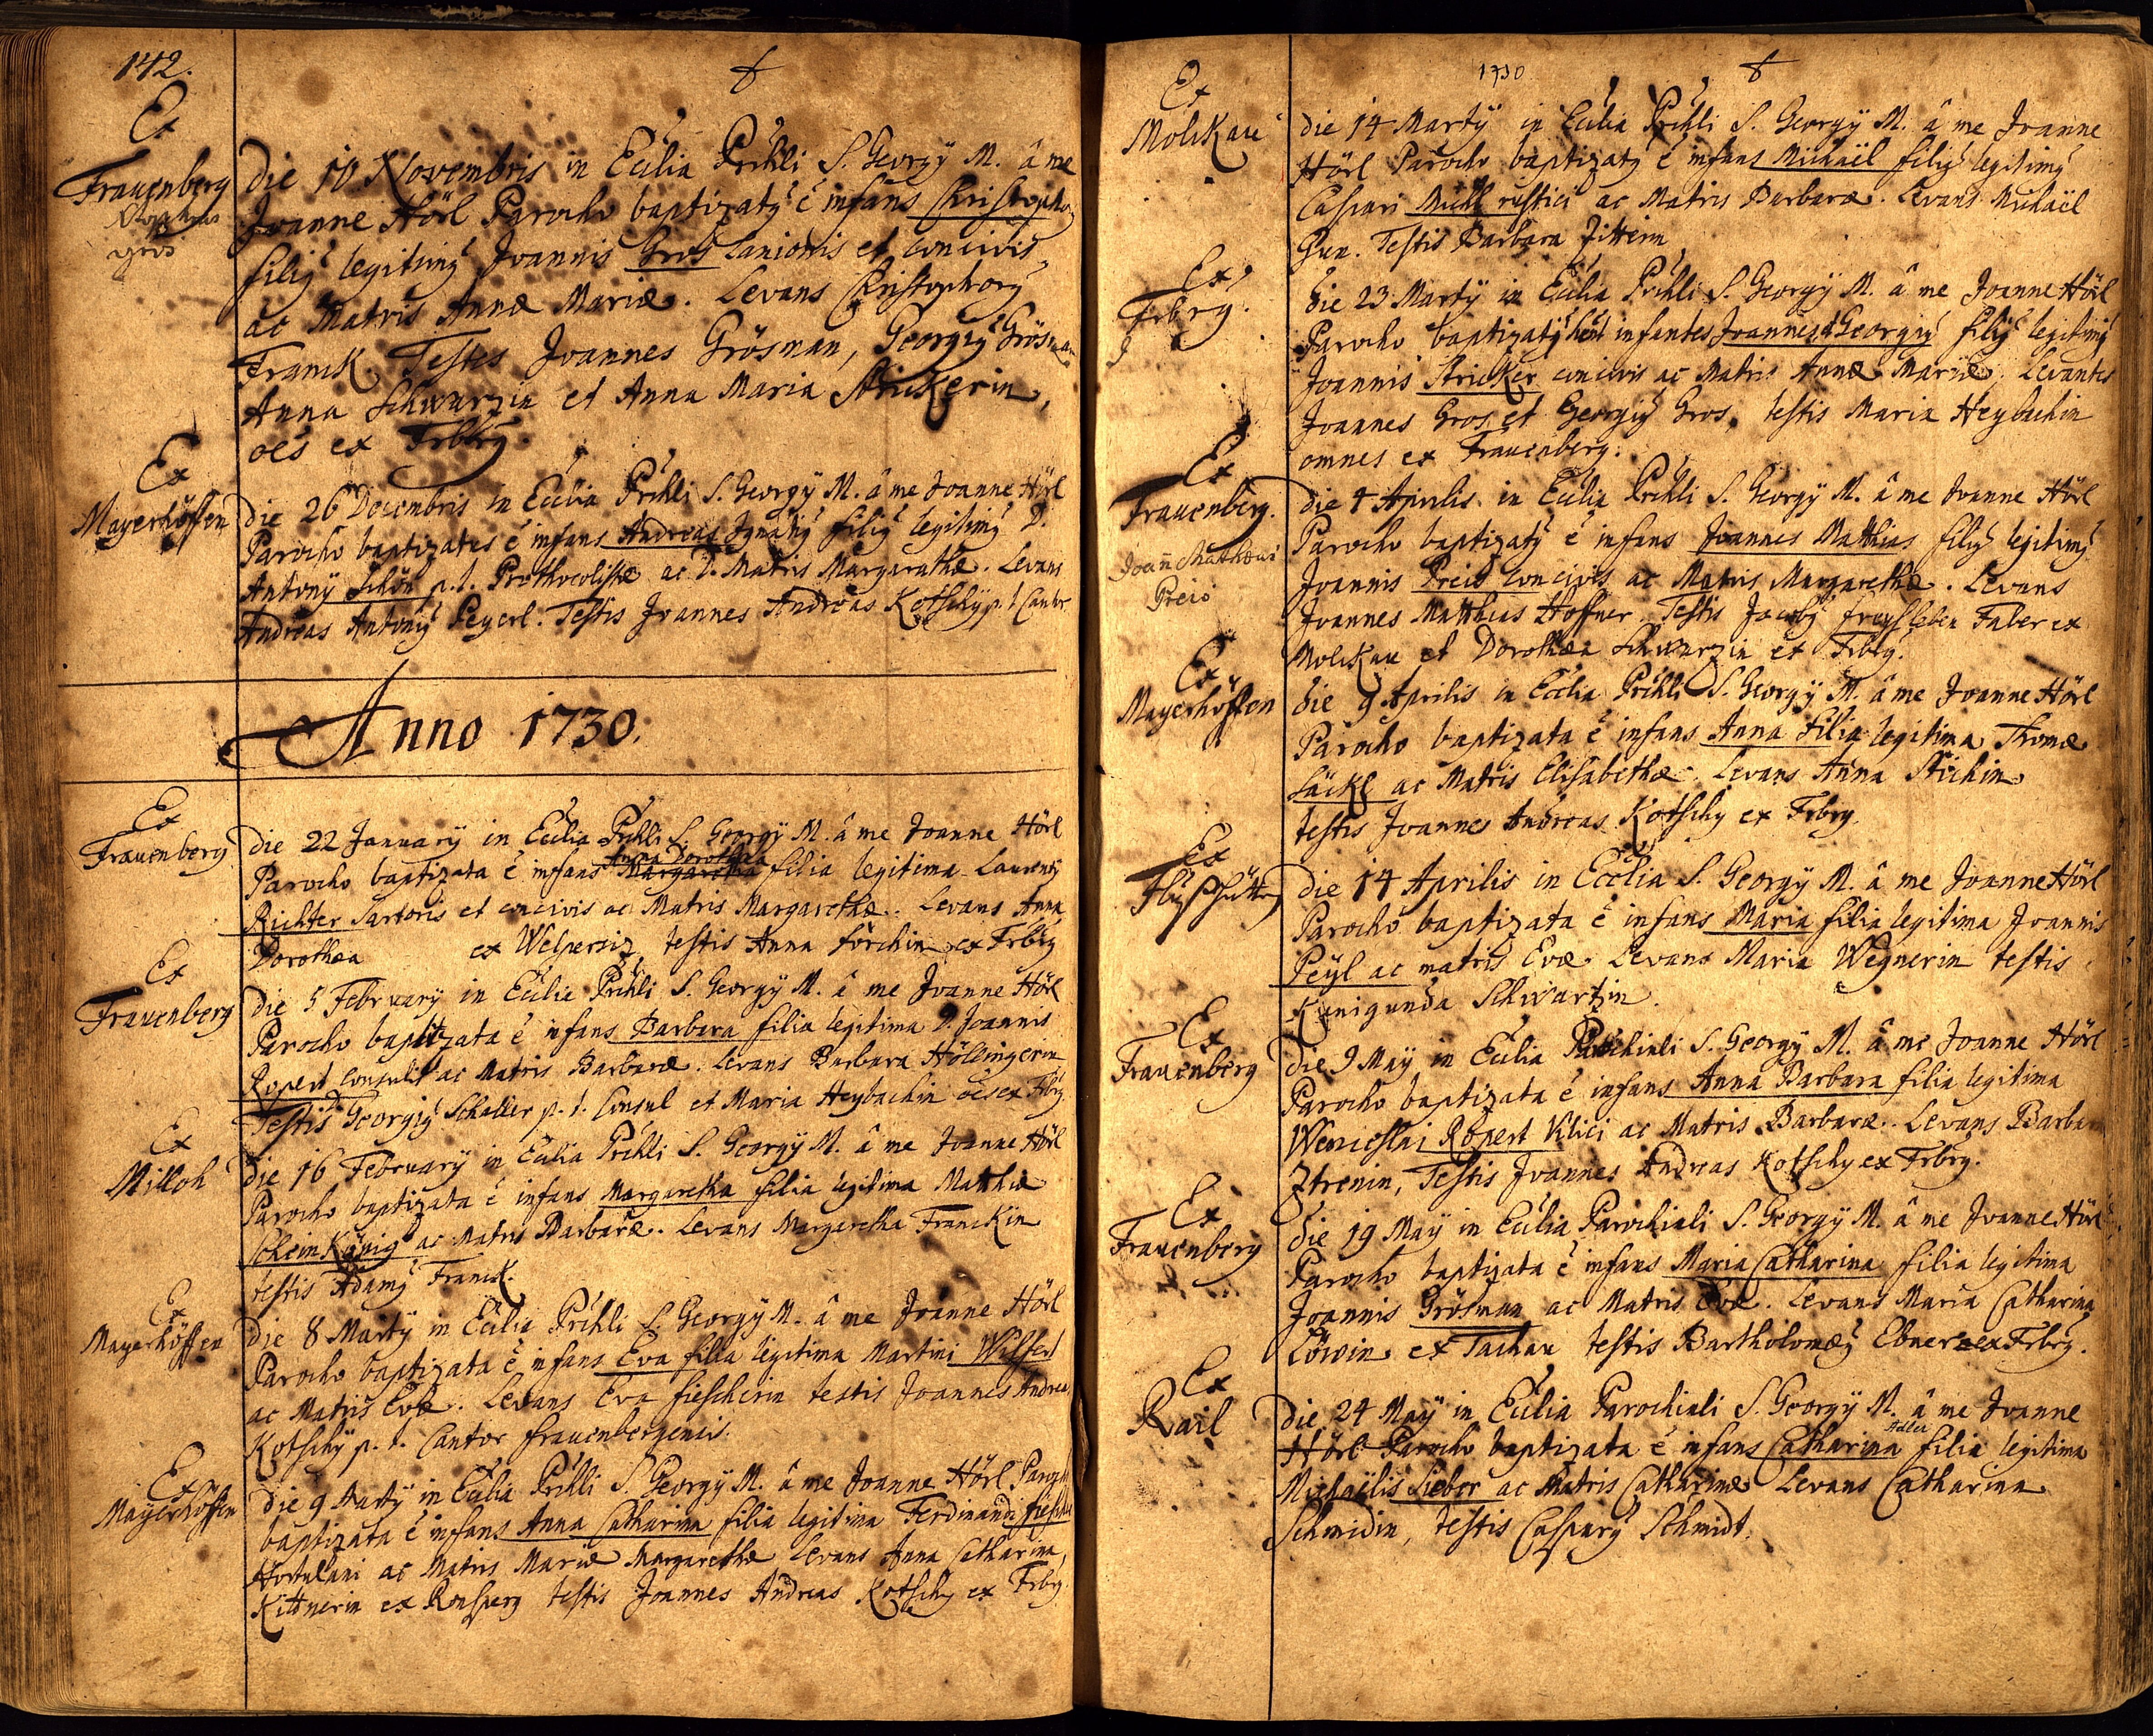 142.
Ex
Frauenberg
gros
die 10 Novembris in Ecclia Prchli S. Georgÿ M. â me
Joanne Hörl Parocho baptizatq ẽ infans Christophorq
filiq legitimq Joannis Gros Lanionis et concivis
ac Matris Annæ Mariæ. Levans Christophorq
Franck. Testes Joannes Grösman, Georgiq Grösman
Anna Schwarzin et Anna Maria Strickerin,
oẽs ex Frbrg.
Ex
Mayerhöffen
die 26 Decembris in Ecclia Prchli S. Georgÿ M. â me Joanne Hörl
Parocho baptizatus ẽ infans Andreas Ignatiq filiq legitimq D.
Antonÿ Schön p.t. Prothocolistæ ac D. Matris Margarathæ. Levans
Andreas Antoniq Peyerl. Testis Joannes Andreas Kotschÿ p.t. Cantor
Anno 1730.
Ex
Frauenberg
die 22 Januarÿ in Ecclia Prchli S. Georgÿ M. â me Joanne Hörl
Anna Dorothea
Parocho baptizata ẽ infans Margaretha filia legitima Laurentÿ
Richter Sartoris et concivis ac Matris Margarethæ. Levans Anna
Dorothea ex Welperziz, testis Anna Förchin ex Frbrg
Ex
Frauenberg
die 5 Februarÿ in Ecclia Prchli S. Georgÿ M. â me Joanne Hörl
Parocho baptizata ẽ infans Barbara filia legitima D. Joannis
Ropert Consulis ac Matris Barbaræ. Levans Barbara Höllingerin
Testis D. Georgiq Schaller p.t. Consul et Maria Heybachin oẽs ex Frbrg.
Ex
Milloh
die 16 Februarÿ in Ecclia Prchli S. Georgÿ M. â me Joanne Hörl
Parocho baptizata ẽ infans Margaretha filia legitima Matthiæ
Scheinkönig ac Matris Barbaræ. Levans Margaretha Franckin
testis Adamq Franck.
Ex
Mayerhöffen
die 8 Martÿ in Ecclia Prchli S. Georgÿ M. â me Joanne Hörl
Parocho baptizata ẽ infans Eva filia legitima Martini Wilfert
ac Matris Evæ. Levans Eva Fiescherin testis Joannes Andreas
Kotschÿ p.t. Cantor Frauenbergensis.
Ex
Mayerhöffen
die 9 Martÿ in Ecclia Prchli S. Georgÿ M. â me Joanne Hörl Parocho
baptizata ẽ infans Anna Catharina filia legitima Ferdinandi
Hortulani ac Matris Mariæ Margarethæ Levans Anna Catharina
Kittnerin ex Ronsperg testis Joannes Andreas Kotschy ex Frbrg.
1730
Ex
Molikau
die 14 Martÿ in Ecclia Prchli S. Georgÿ M. â me Joanne
Hörl Parocho baptizatq ẽ infans Michaël filiq legitimq
Caspari Michl rustici ac Matris Barbaræ. Levans Michaël
Gun. Testis Barbara Zitterin
Ex
Frbrg.
die 23 Martÿ in Ecclia Prchli S. Georgÿ M. â me Joanne Hörl
Parocho baptizatq sunt infantes Joannes & Georgiq filiq legitimq
Joannis Stricker concivis ac Matris Annæ Mariæ. Levantes
Joannes Gros et Georgiq Gros, testis Maria Heybachin
omnes ex Frauenberg.
Ex
Frauenberg.
Joan̄ Matthæus
Preis
die 4 Aprilis in Ecclia Prchli S. Georgÿ M. â me Joanne Hörl
Parocho baptizatq ẽ infans Joannes Matthias filiq legitimq
Joannis Preis concivis ac Matris Margarethæ. Levans
Joannes Matthias Hoffner. Testis Jacobq Freysleben Faber ex
Molikau et Dorothea Schwarzin ex Frbrg.
Ex
Mayerhöffen
die 9 Aprilis in Ecclia Prchli S. Georgÿ M. â me Joanne Hörl
Parocho baptizata ẽ infans Anna Filia legitima Thomæ
Säckl ac Matris Elisabethæ. Levans Anna Stichin
testis Joannes Andreas Kotschy ex Frbrg.
Ex
Flußhütt
die 14 Aprilis in Ecclia S. Georgÿ M. â me Joanne Hörl
Parocho baptizata ẽ infans Maria filia legitima Joannis
Peÿl ac matris Evæ Levans Maria Wegnerin testis
Kunigunda Schwartzin.
Ex
Frauenberg
die 9 May in Ecclia Parochiali S. Georgÿ M. â me Joanne Hörl
Parocho baptizata ẽ infans Anna Barbara filia legitima
Wenceslai Ropert Vilici ac Matris Barbaræ. Levans Barbara
Ztrenin, Testis Joannes Andreas Kotschy ex Frbrg.
Ex
Frauenberg
die 19 May in Ecclia Parochiali S. Georgÿ M. â me Joanne Hörl
Parocho baptizata ẽ infans Maria Catharina filia legitima
Joannis Grösman ac Matris Evæ. Levans Maria Catharina
Löwin ex Tachau testis Bartholomæq Ebner ex Frbrg.
Ex
Rail
die 24 Maÿ in Ecclia Parochiali S. Georgÿ M. â me Joanne
Hörl Parocho baptizata ẽ infans Catharina filia legitima
Michaëlis Sieber ac Matris Catharinæ Levans Catharina
Schmidin, testis Casparq Schmidt.